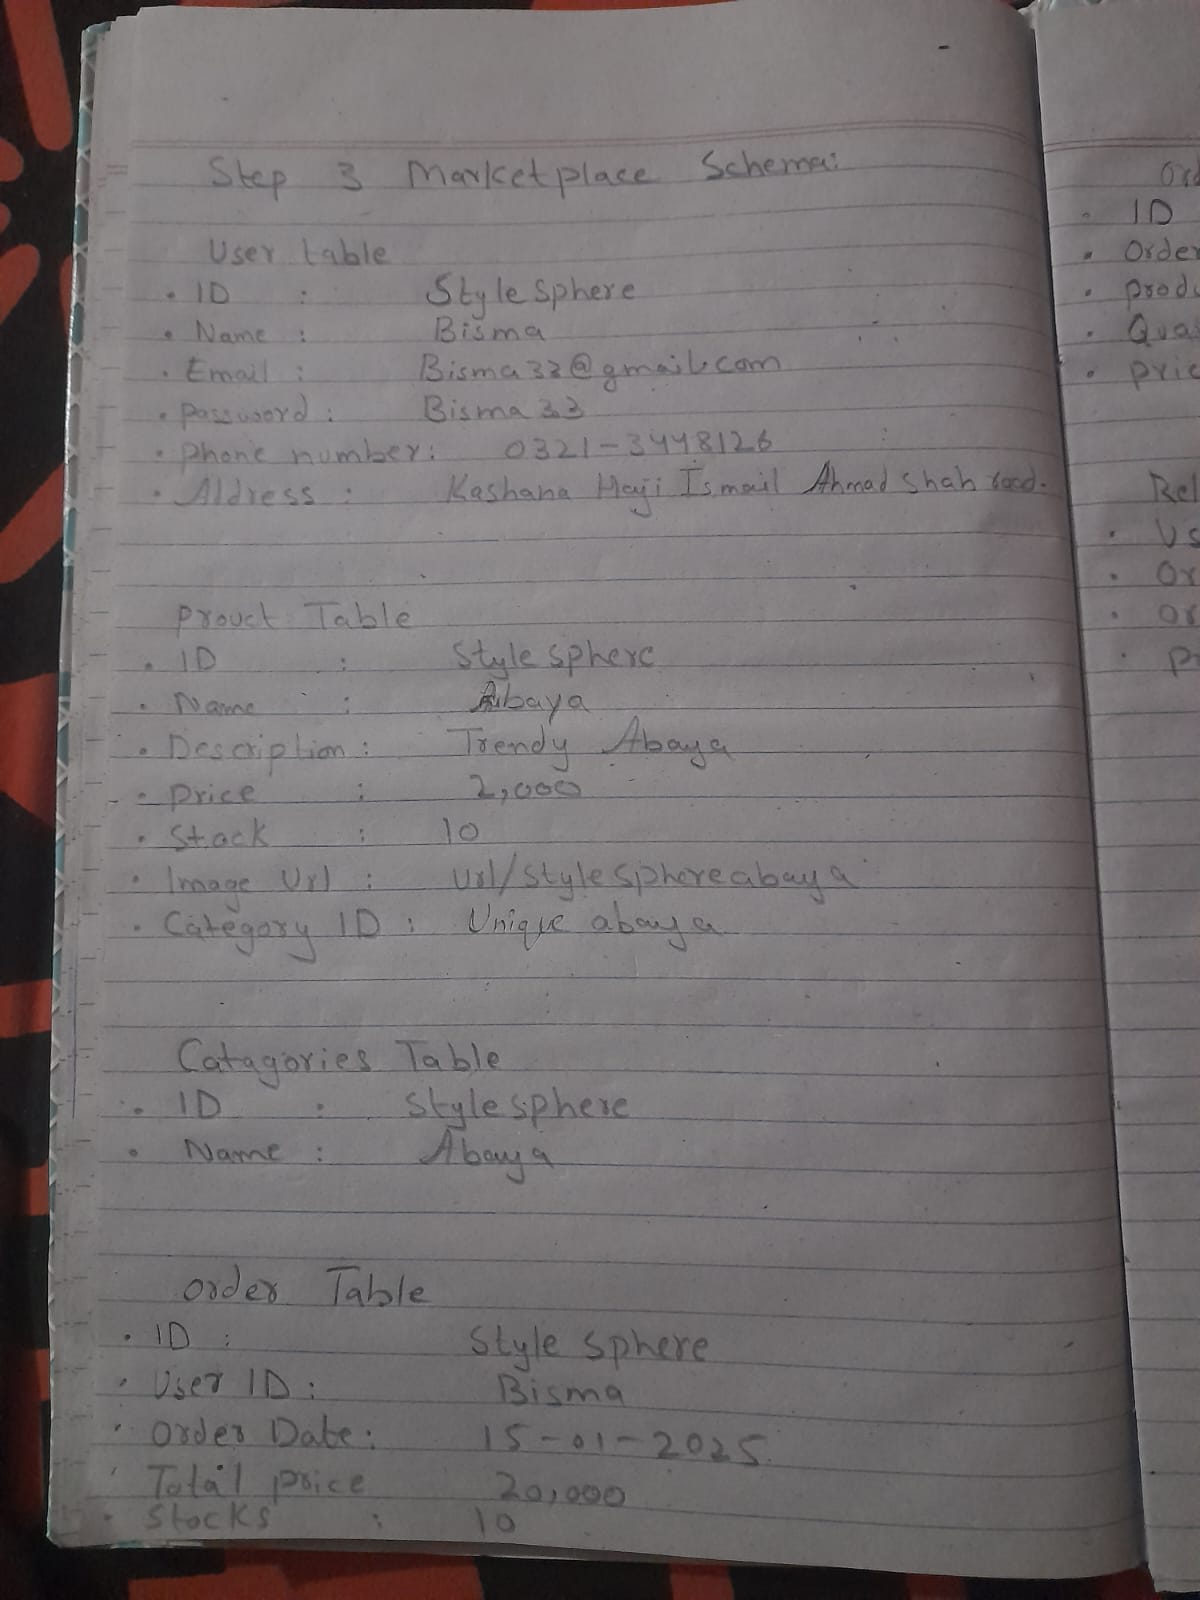 Step 3 Marketplace Schema:
User table
• ID : Style Sphere
• Name : Bisma
• Email : Bisma33@gmail.com
• Password : Bisma33
• Phone number : 0321-3448126
• Address : Kashana Haji Ismail Ahmad Shah road.
Prouct Table
• ID : Style sphere
• Name : Abaya
• Description : Trendy Abaya
• Price : 2,000
• Stock : 10
• Image Url : Url/stylesphereabaya
• Category ID : Unique abaya
Catagories Table
• ID : Stylesphere
• Name : Abaya
Order Table
• ID : Style sphere
• User ID : Bisma
• Order Date : 15-01-2025
Total price 20,000
• Stocks : 10
• ID
• Order